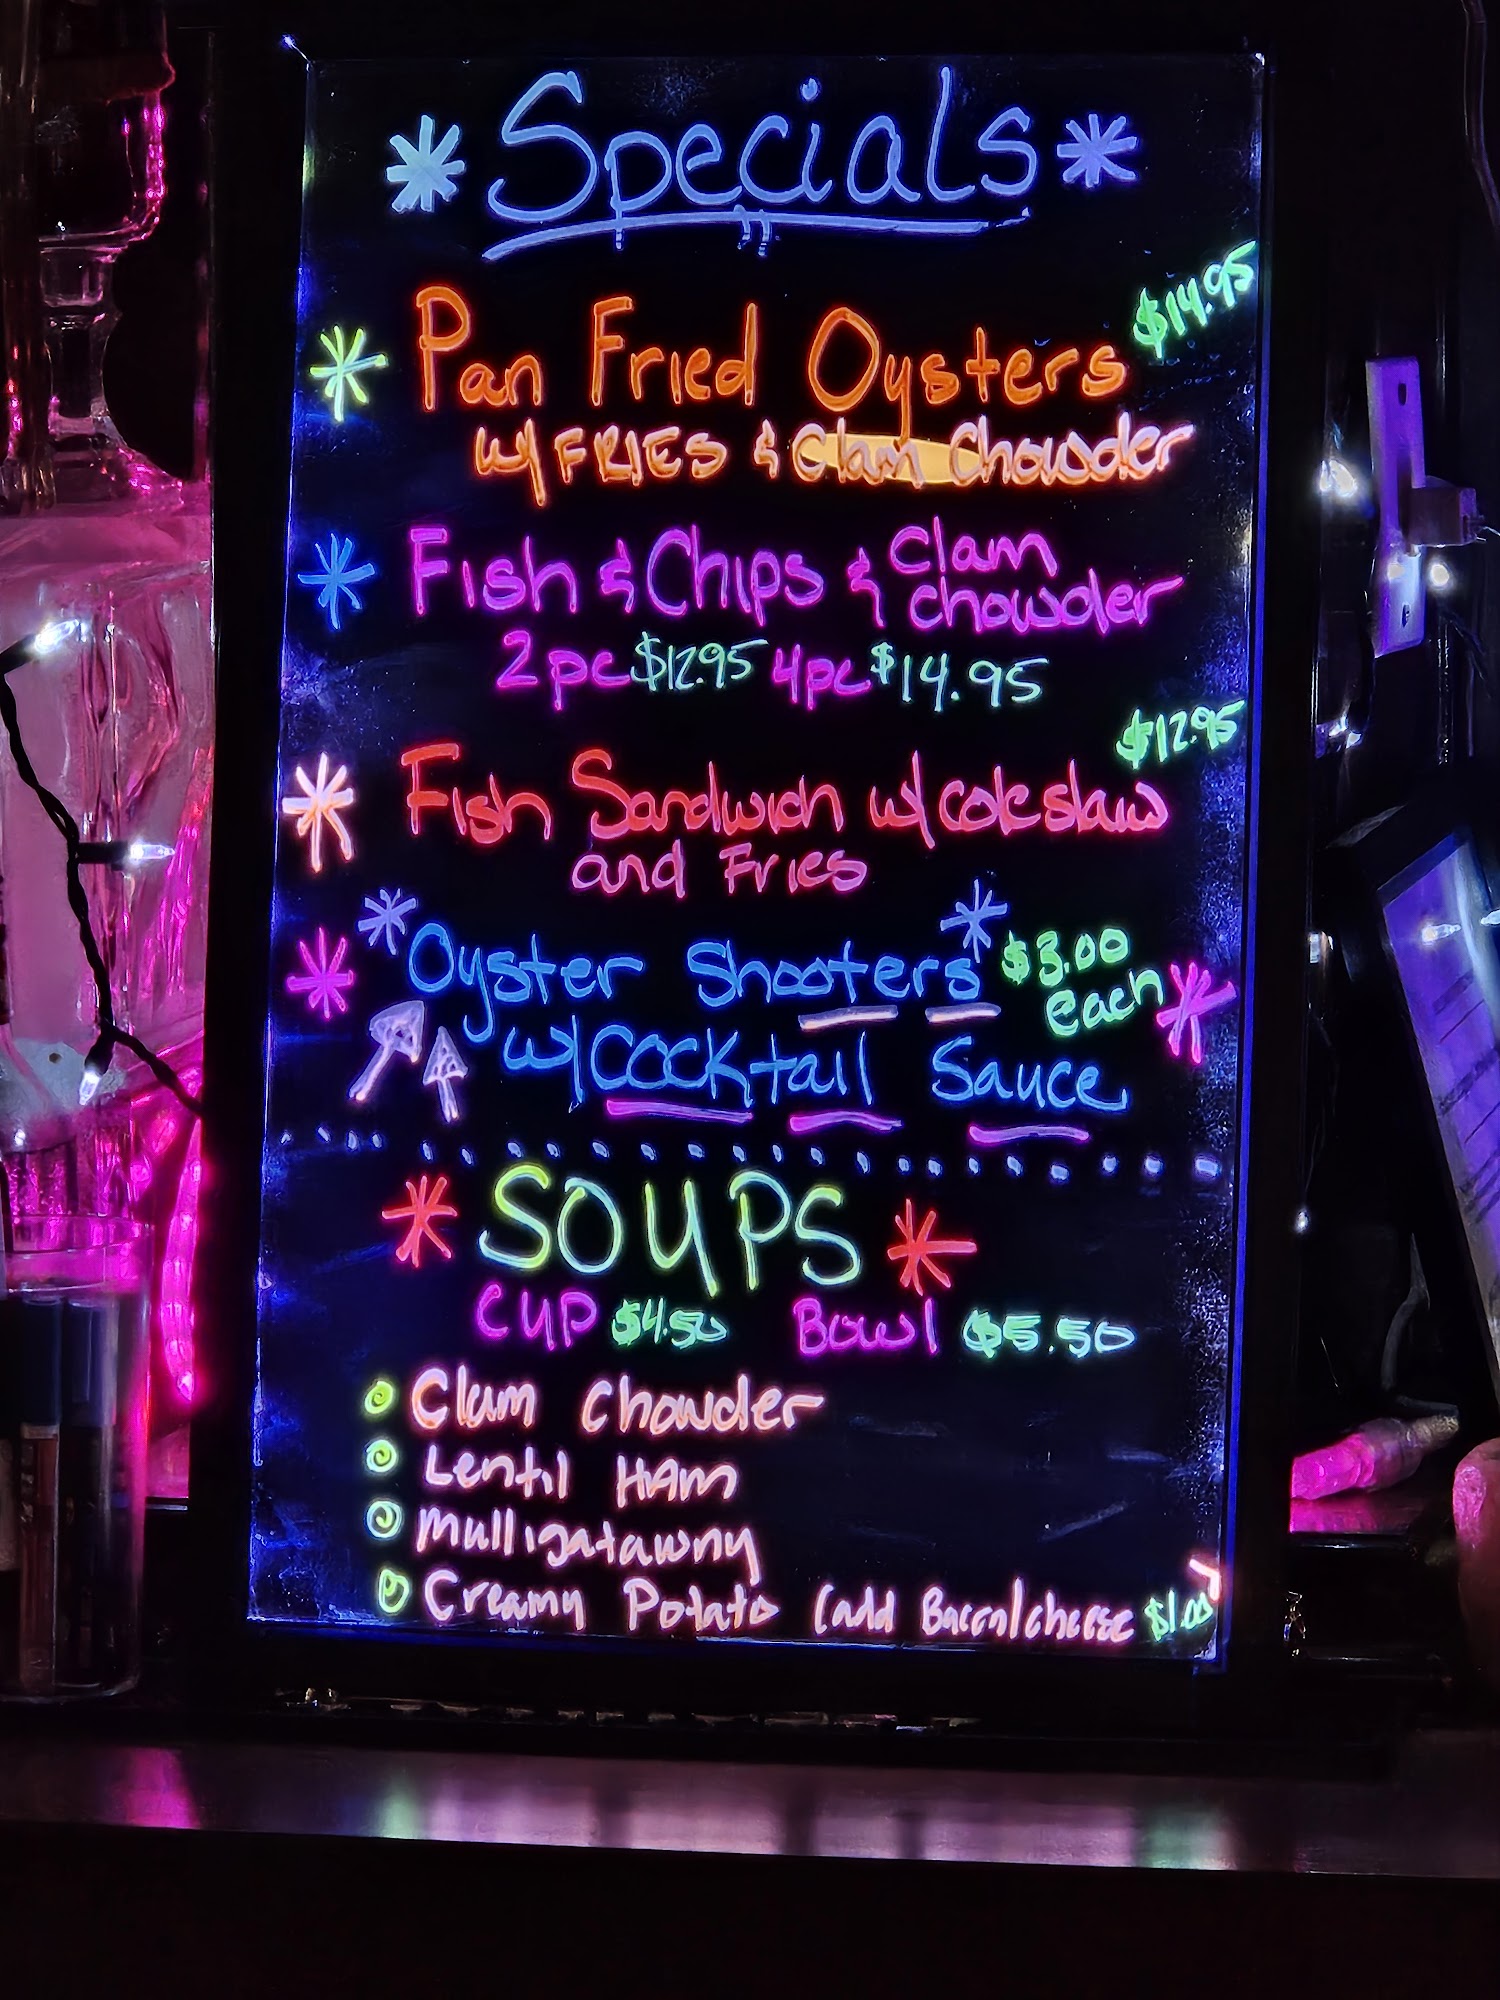 Specials
$14.95
Pan Fried Oysters
w/ FRIES & Clam Chowder
Fish & Chips & Clam chowder
2pc $12.95 4pc $14.95
$12.95
Fish Sandwich w/ coleslaw
and Fries
Oyster Shooters $3.00 each
w/ Cocktail Sauce
SOUPS
CUP $4.50 Bowl $5.50
Clam Chowder
Lentil HAm
Mulligatawny
Creamy Potato (add Bacon/cheese $1.00)